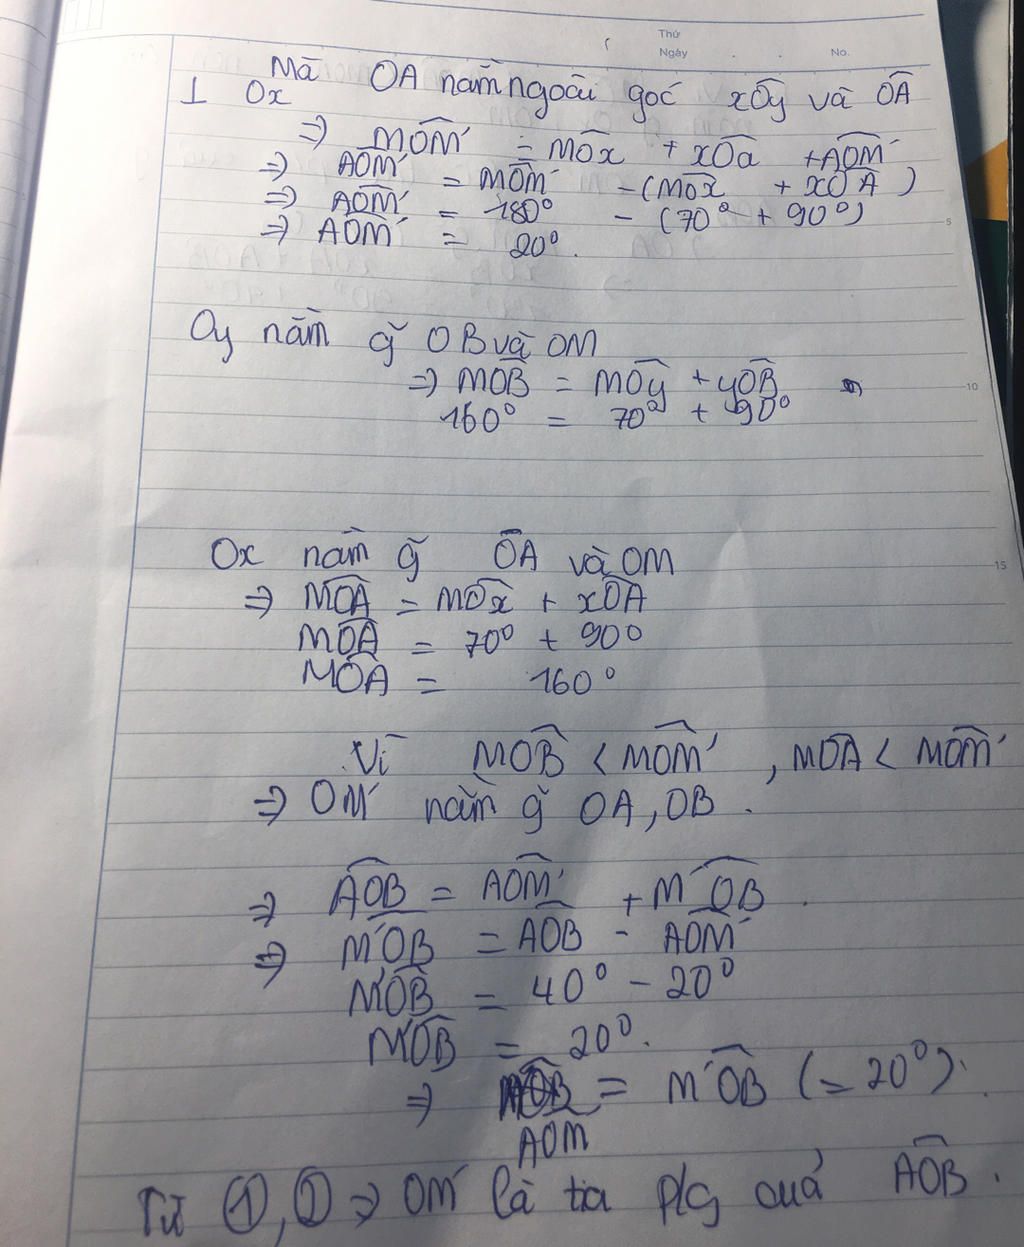 Thứ
Ngày . . No.
Mà OA nằm ngoài góc xOy và OA
⊥ Ox
=> MOM' = MOx + xOa + AOM'
=> AOM' = MOM' - (MOx + xOA)
=> AOM' = 180° - (70° + 90°)
5
=> AOM' = 20°.
Oy nằm g̃ OB và OM
=> MOB = MOy + yOB
10
160° = 70° + 90°
Ox nằm g̃ OA và OM
15
=> MOA = MOx + xOA
MOA = 70° + 90°
MOA = 160°
Vì MOB < MOM', MOA < MOM'
=> OM' nằm g̃ OA, OB.
=> AOB = AOM' + M'OB.
=> M'OB = AOB - AOM'
M'OB = 40° - 20°
M'OB = 20°.
=> = M'OB (= 20°).
AOM
Từ ①, ② => OM' là tia p/g của AOB.